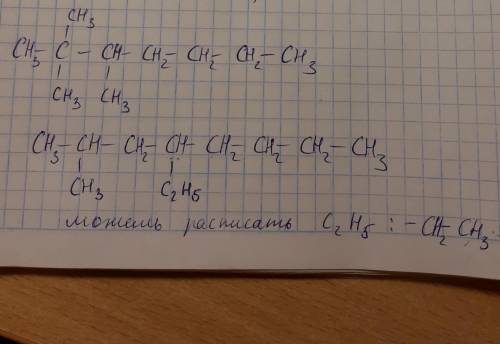 CH₃
CH₃ - C - CH - CH₂ - CH₂ - CH₂ - CH₃
CH₃ CH₃
CH₃ - CH - CH₂ - CH - CH₂ - CH₂ - CH₂ - CH₃
CH₃ C₂H₅
можешь расписать C₂H₅ : - CH₂ CH₃